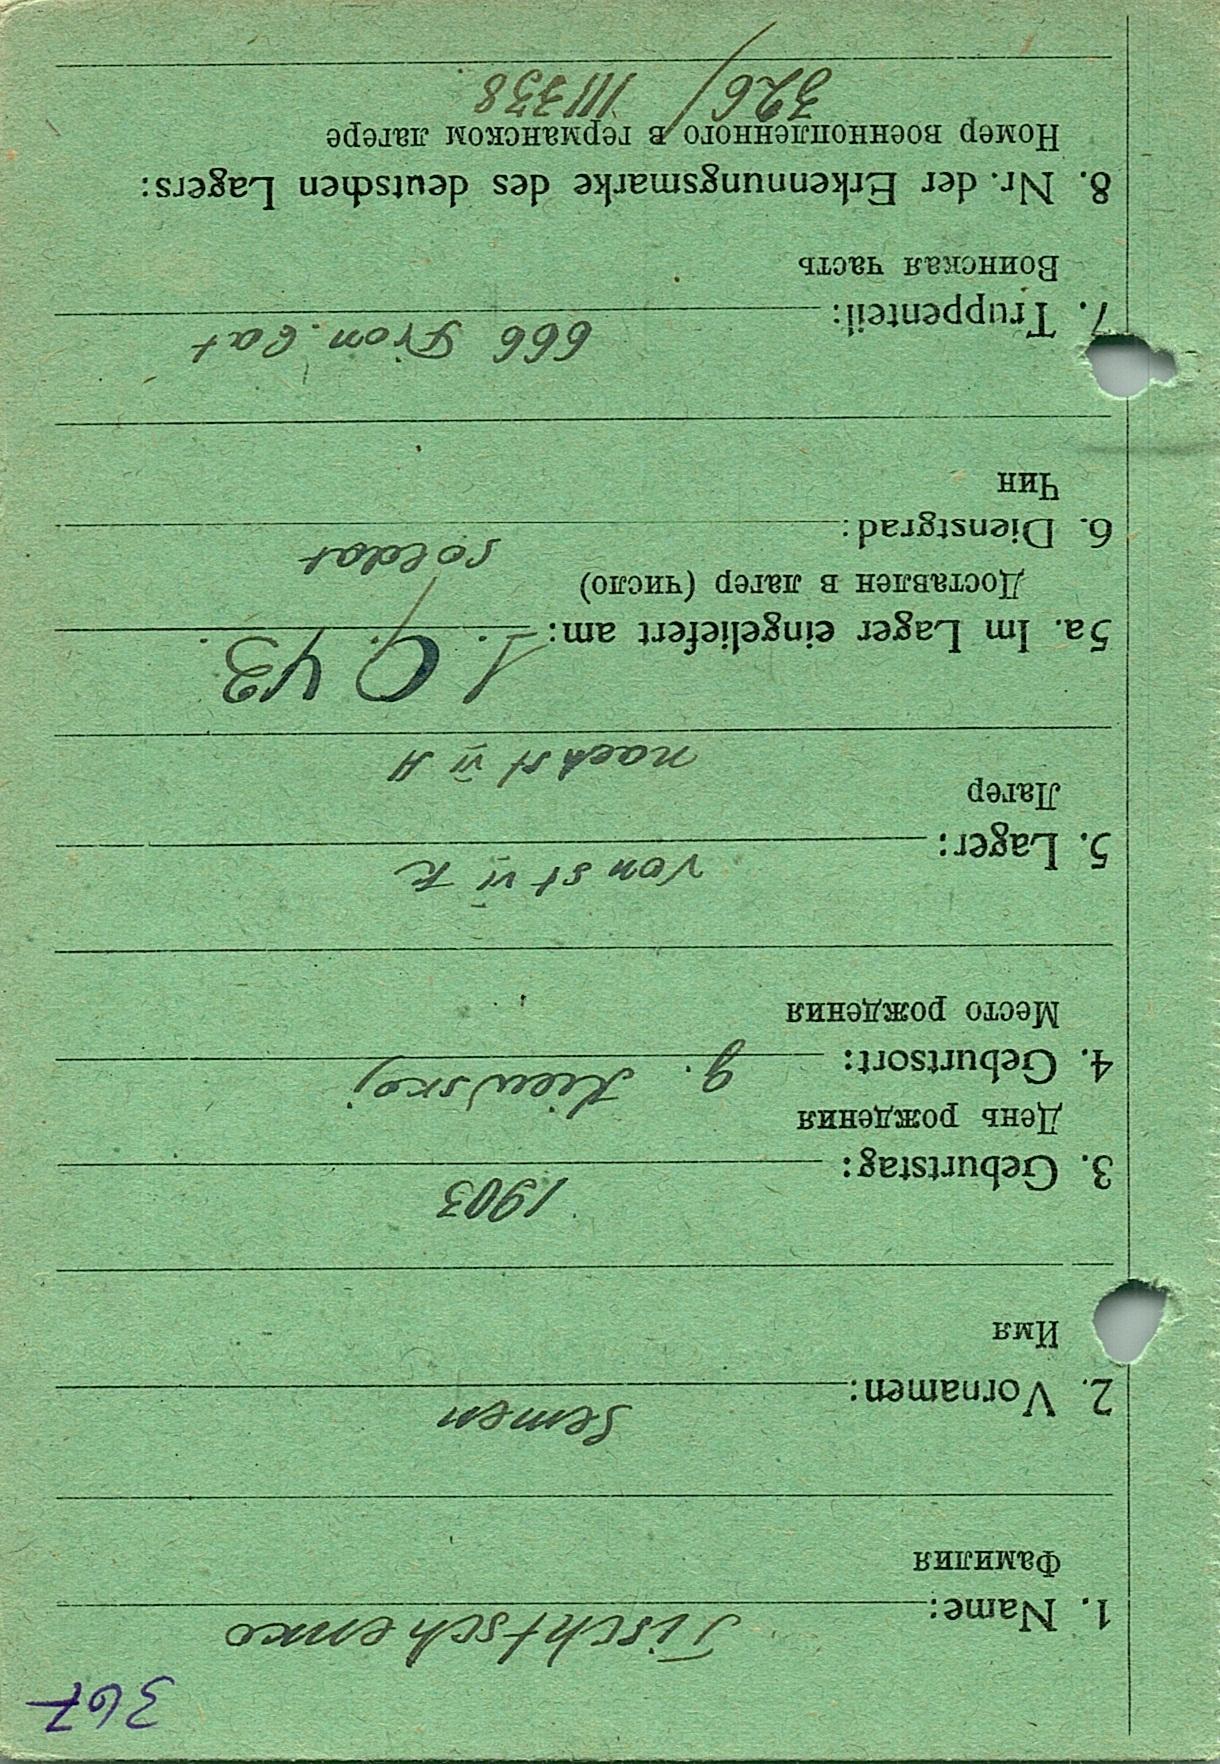 367
1. Name: Tischtschenko
Фамилия
2. Vornamen: Semen
Имя
1903
3. Geburtstag:
День рождения
4. Geburtsort: g. Kiewskoj
Место рождения
von st VI K
5. Lager:
Лагер
nach st VI A
5a. Im Lager eingeliefert am: 1. 9. 43.
Доставлен в лагер (число)
6. Dienstgrad: soldat
Чин
7. Truppenteil: 666
Воинская часть
8. Nr. der Erkennungsmarke des deutschen Lagers:
Номер военнопленного в германском лагере
326/ 111338